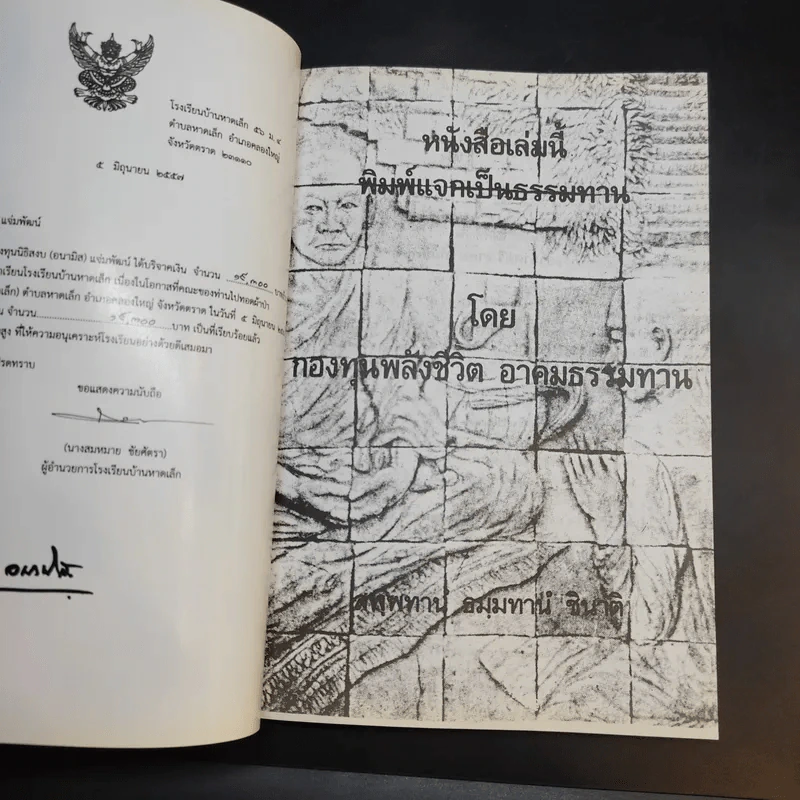 โรงเรียนบ้านหาดเล็ก ๕๖ ม.๔
ตำบลหาดเล็ก อำเภอคลองใหญ่
จังหวัดตราด ๒๓๑๑๐
๕ มิถุนายน ๒๕๕๗
แจ่มพัฒน์
งทุนนิธิสงบ (อนามิส) แจ่มพัฒน์ ได้บริจาคเงิน จำนวน ๑๙,๓๐๐
เรียนโรงเรียนบ้านหาดเล็ก เนื่องในโอกาสที่คณะของท่านไปทอดผ้าป่า
เล็ก) ตำบลหาดเล็ก อำเภอคลองใหญ่ จังหวัดตราด ในวันที่ ๕ มิถุนายน
น จำนวน ๑๙,๓๐๐ บาท เป็นที่เรียบร้อยแล้ว
สูง ที่ให้ความอนุเคราะห์โรงเรียนอย่างด้วยดีเสมอมา
รดทราบ
ขอแสดงความนับถือ
(นางสมหมาย ชัยศัตรา)
ผู้อำนวยการโรงเรียนบ้านหาดเล็ก
หนังสือเล่มนี้
พิมพ์แจกเป็นธรรมทาน
โดย
กองทุนพลังชีวิต อาคมธรรมทาน
สพฺพทานํ ธมฺมทานํ ชินาติ